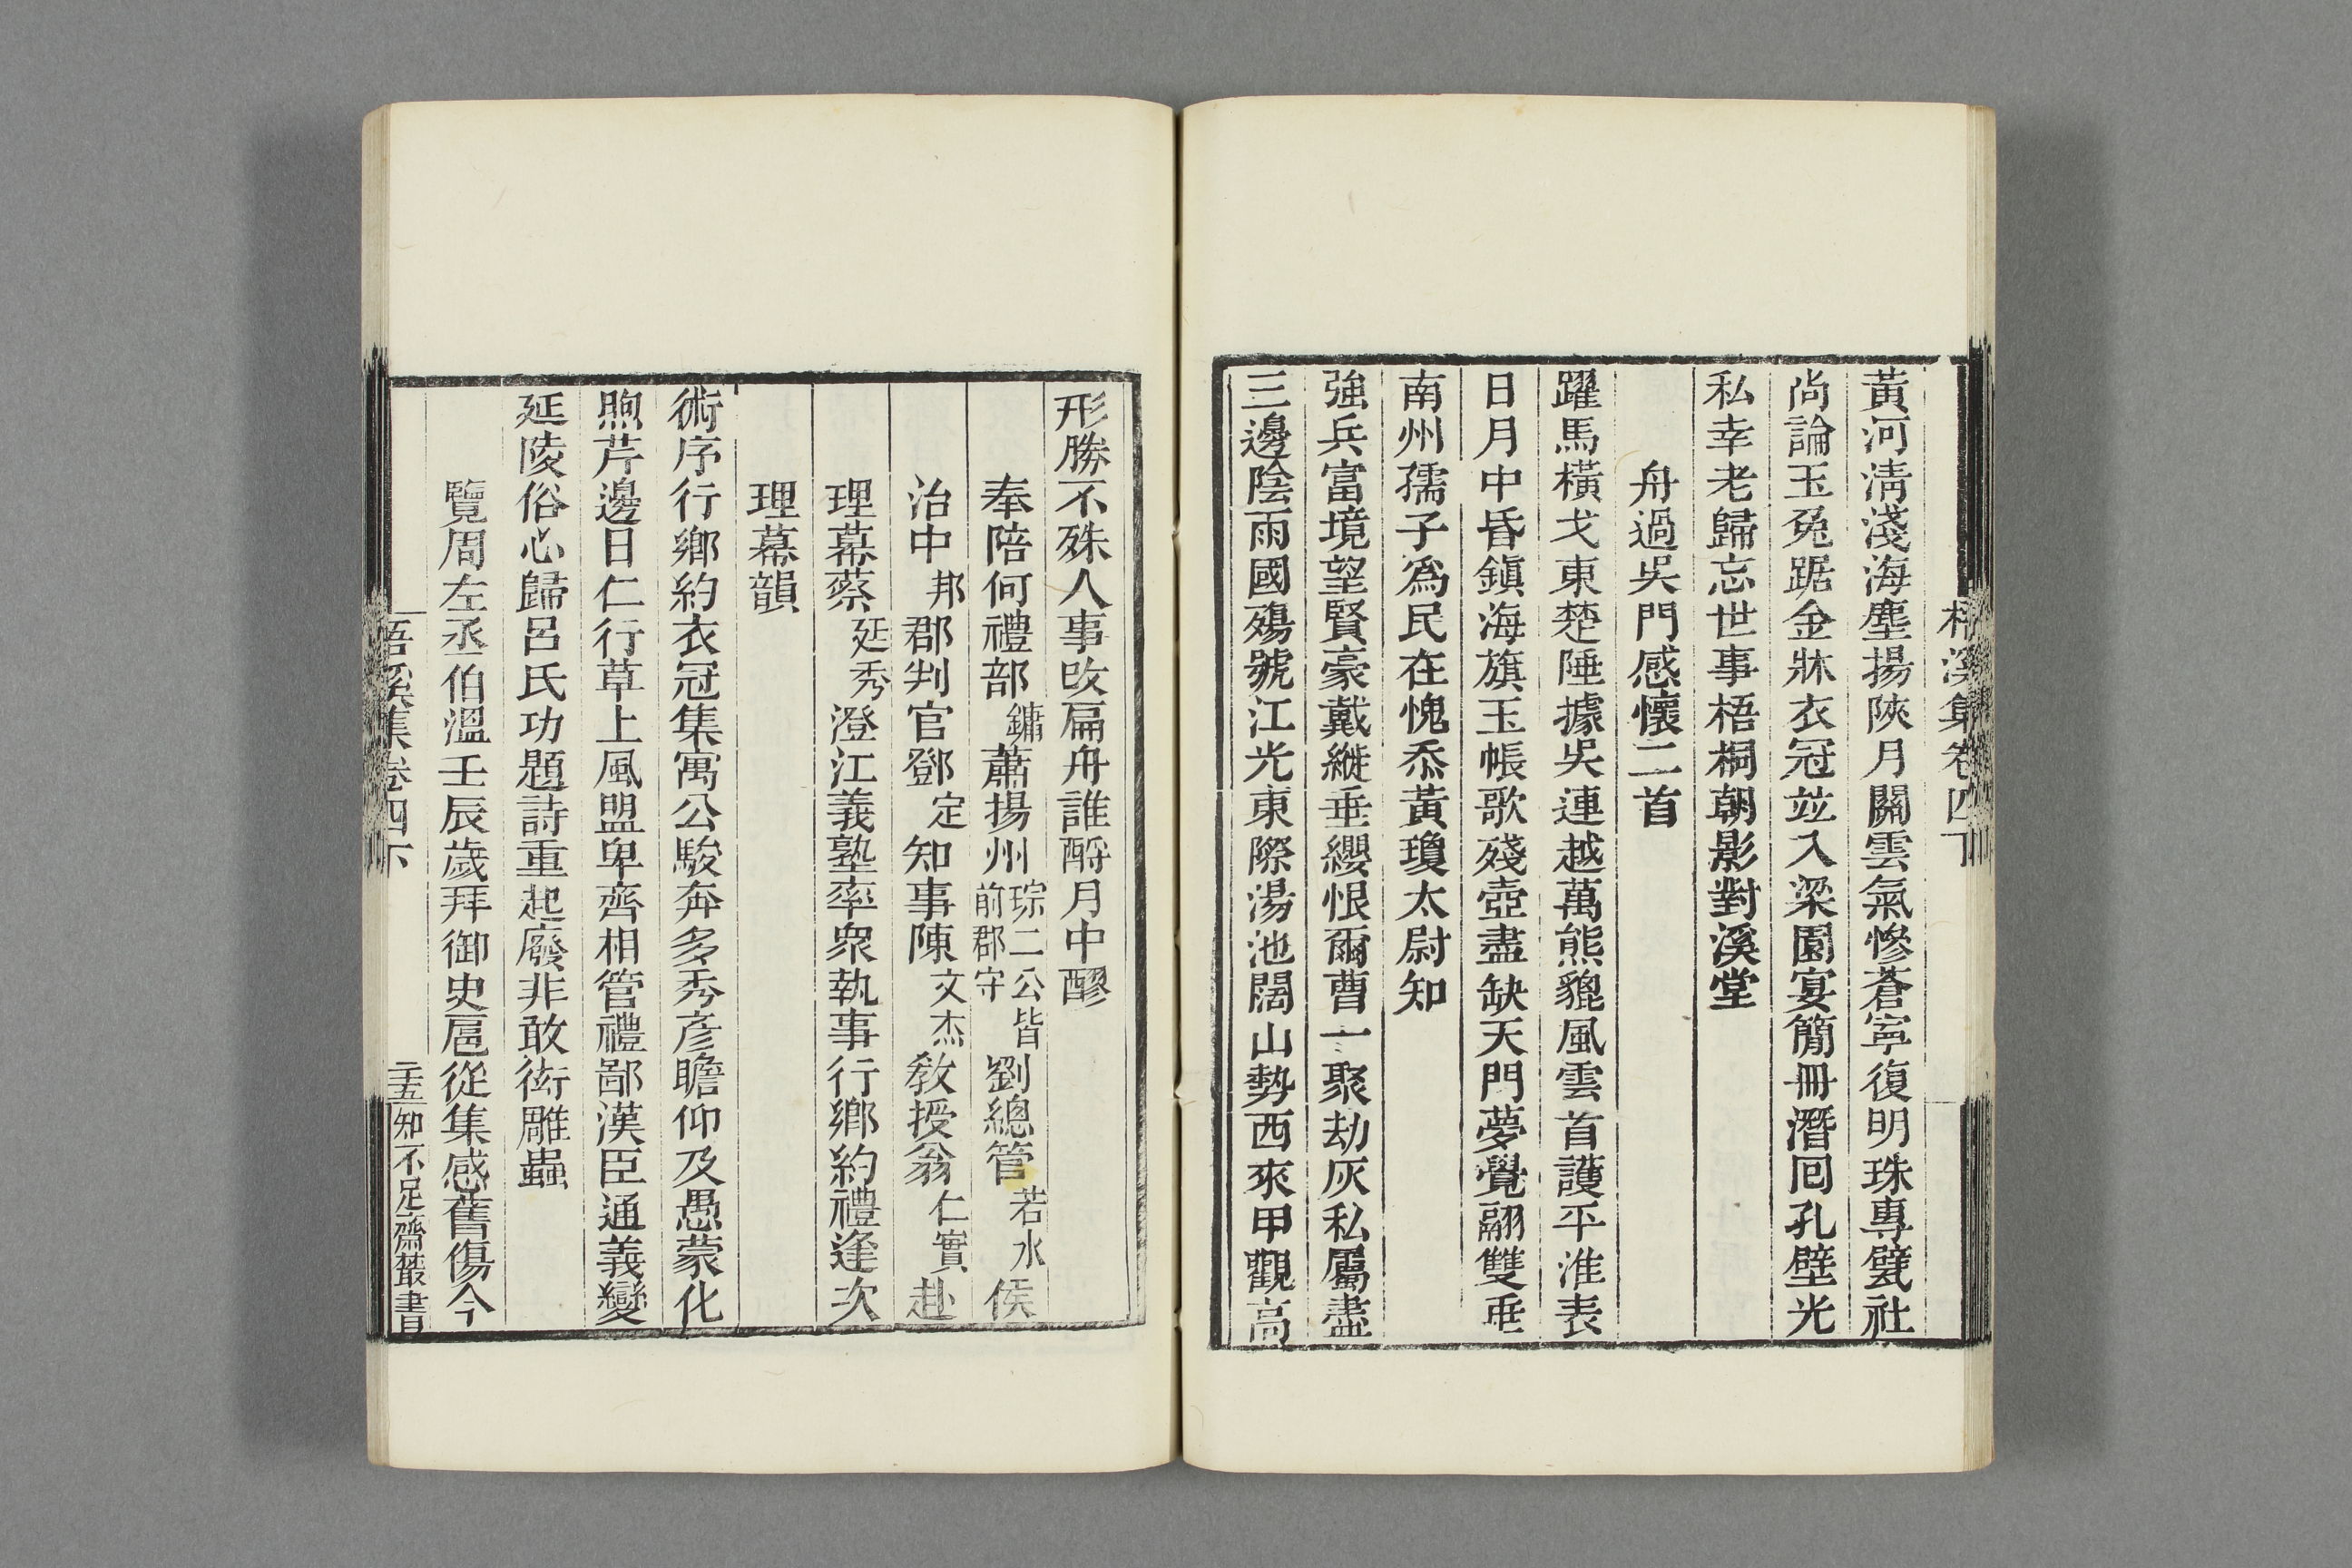 梧溪集卷四下
黃河淸淺海塵揚陝月關雲氣慘蒼寧復明珠專甓社
尚論玉兔踞金牀衣冠竝入梁園宴簡冊潛回孔壁光
私幸老歸忘世事梧桐朝影對溪堂
舟過吳門感懷二首
躍馬橫戈東楚陲據吳連越萬熊貔風雲首護平淮表
日月中昏鎭海旗玉帳歌殘壺盡缺天門夢覺翮雙垂
南州孺子爲民在愧忝黃瓊太尉知
強兵富境望賢豪戴縰垂纓恨爾曹一聚劫灰私屬盡
三邊陰雨國殤號江光東際湯池闊山勢西來甲觀高
形勝不殊人事改扁舟誰酹月中醪
奉陪何禮部鏞蕭揚州琮二公皆前郡守劉總管若水侯
治中邦郡判官鄧定知事陳文杰敎授翁仁實赴
理幕蔡延秀澄江義塾率衆執事行鄉約禮逢次
理幕韻
術序行鄉約衣冠集寓公駿奔多秀彥瞻仰及愚蒙化
煦芹邊日仁行草上風盟卑齊相管禮鄙漢臣通義變
延陵俗心歸呂氏功題詩重起廢非敢衒雕蟲
覽周左丞伯溫壬辰歲拜御史扈從集感舊傷今
梧溪集卷四下
二十五
知不足齋叢書